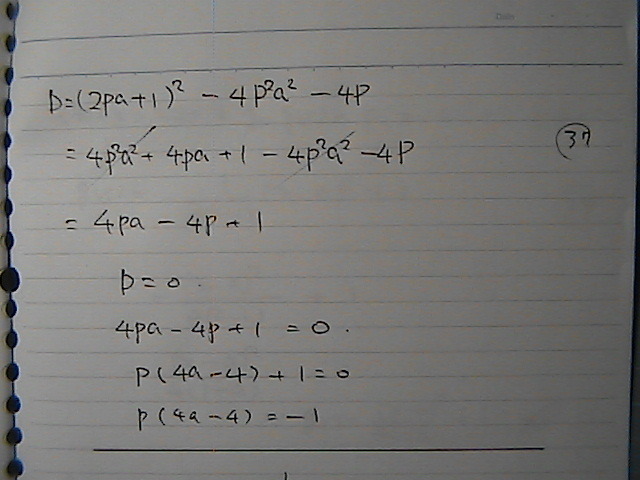 Date
D=(2pa+1)² - 4p²a² - 4p
= 4p²a² + 4pa + 1 - 4p²a² - 4p
= 4pa - 4p + 1
D = 0.
4pa - 4p + 1 = 0.
p(4a-4) + 1 = 0
p(4a-4) = -1